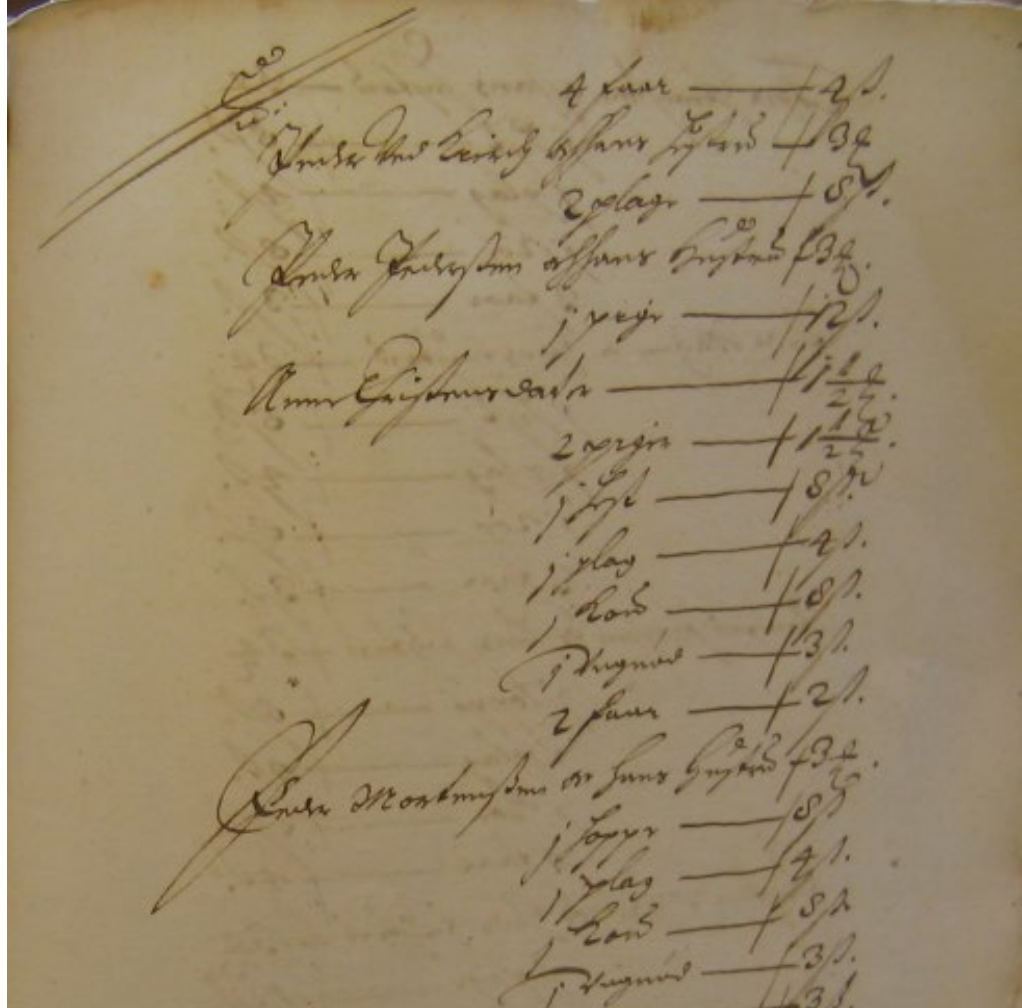 4 faar — 4 ß.
Peder Ved Kirch och hans Hustru — 3
2 plage — 8 ß.
Peder Pederßen och hans Hustru 3
j pige — 12 ß.
Anne Christensdater — 1 1/2
2 piger — 1 1/2
j Hest — 8 ß.
j plag — 4 ß.
j Koe — 8 ß.
j Ungnød — 3 ß.
2 faar — 2 ß.
Peder Mortenßen oc hans Hustru 3
j hoppe — 8 ß
j plag — 4 ß.
j Koe — 8 ß
j Ungnød — 3 ß.